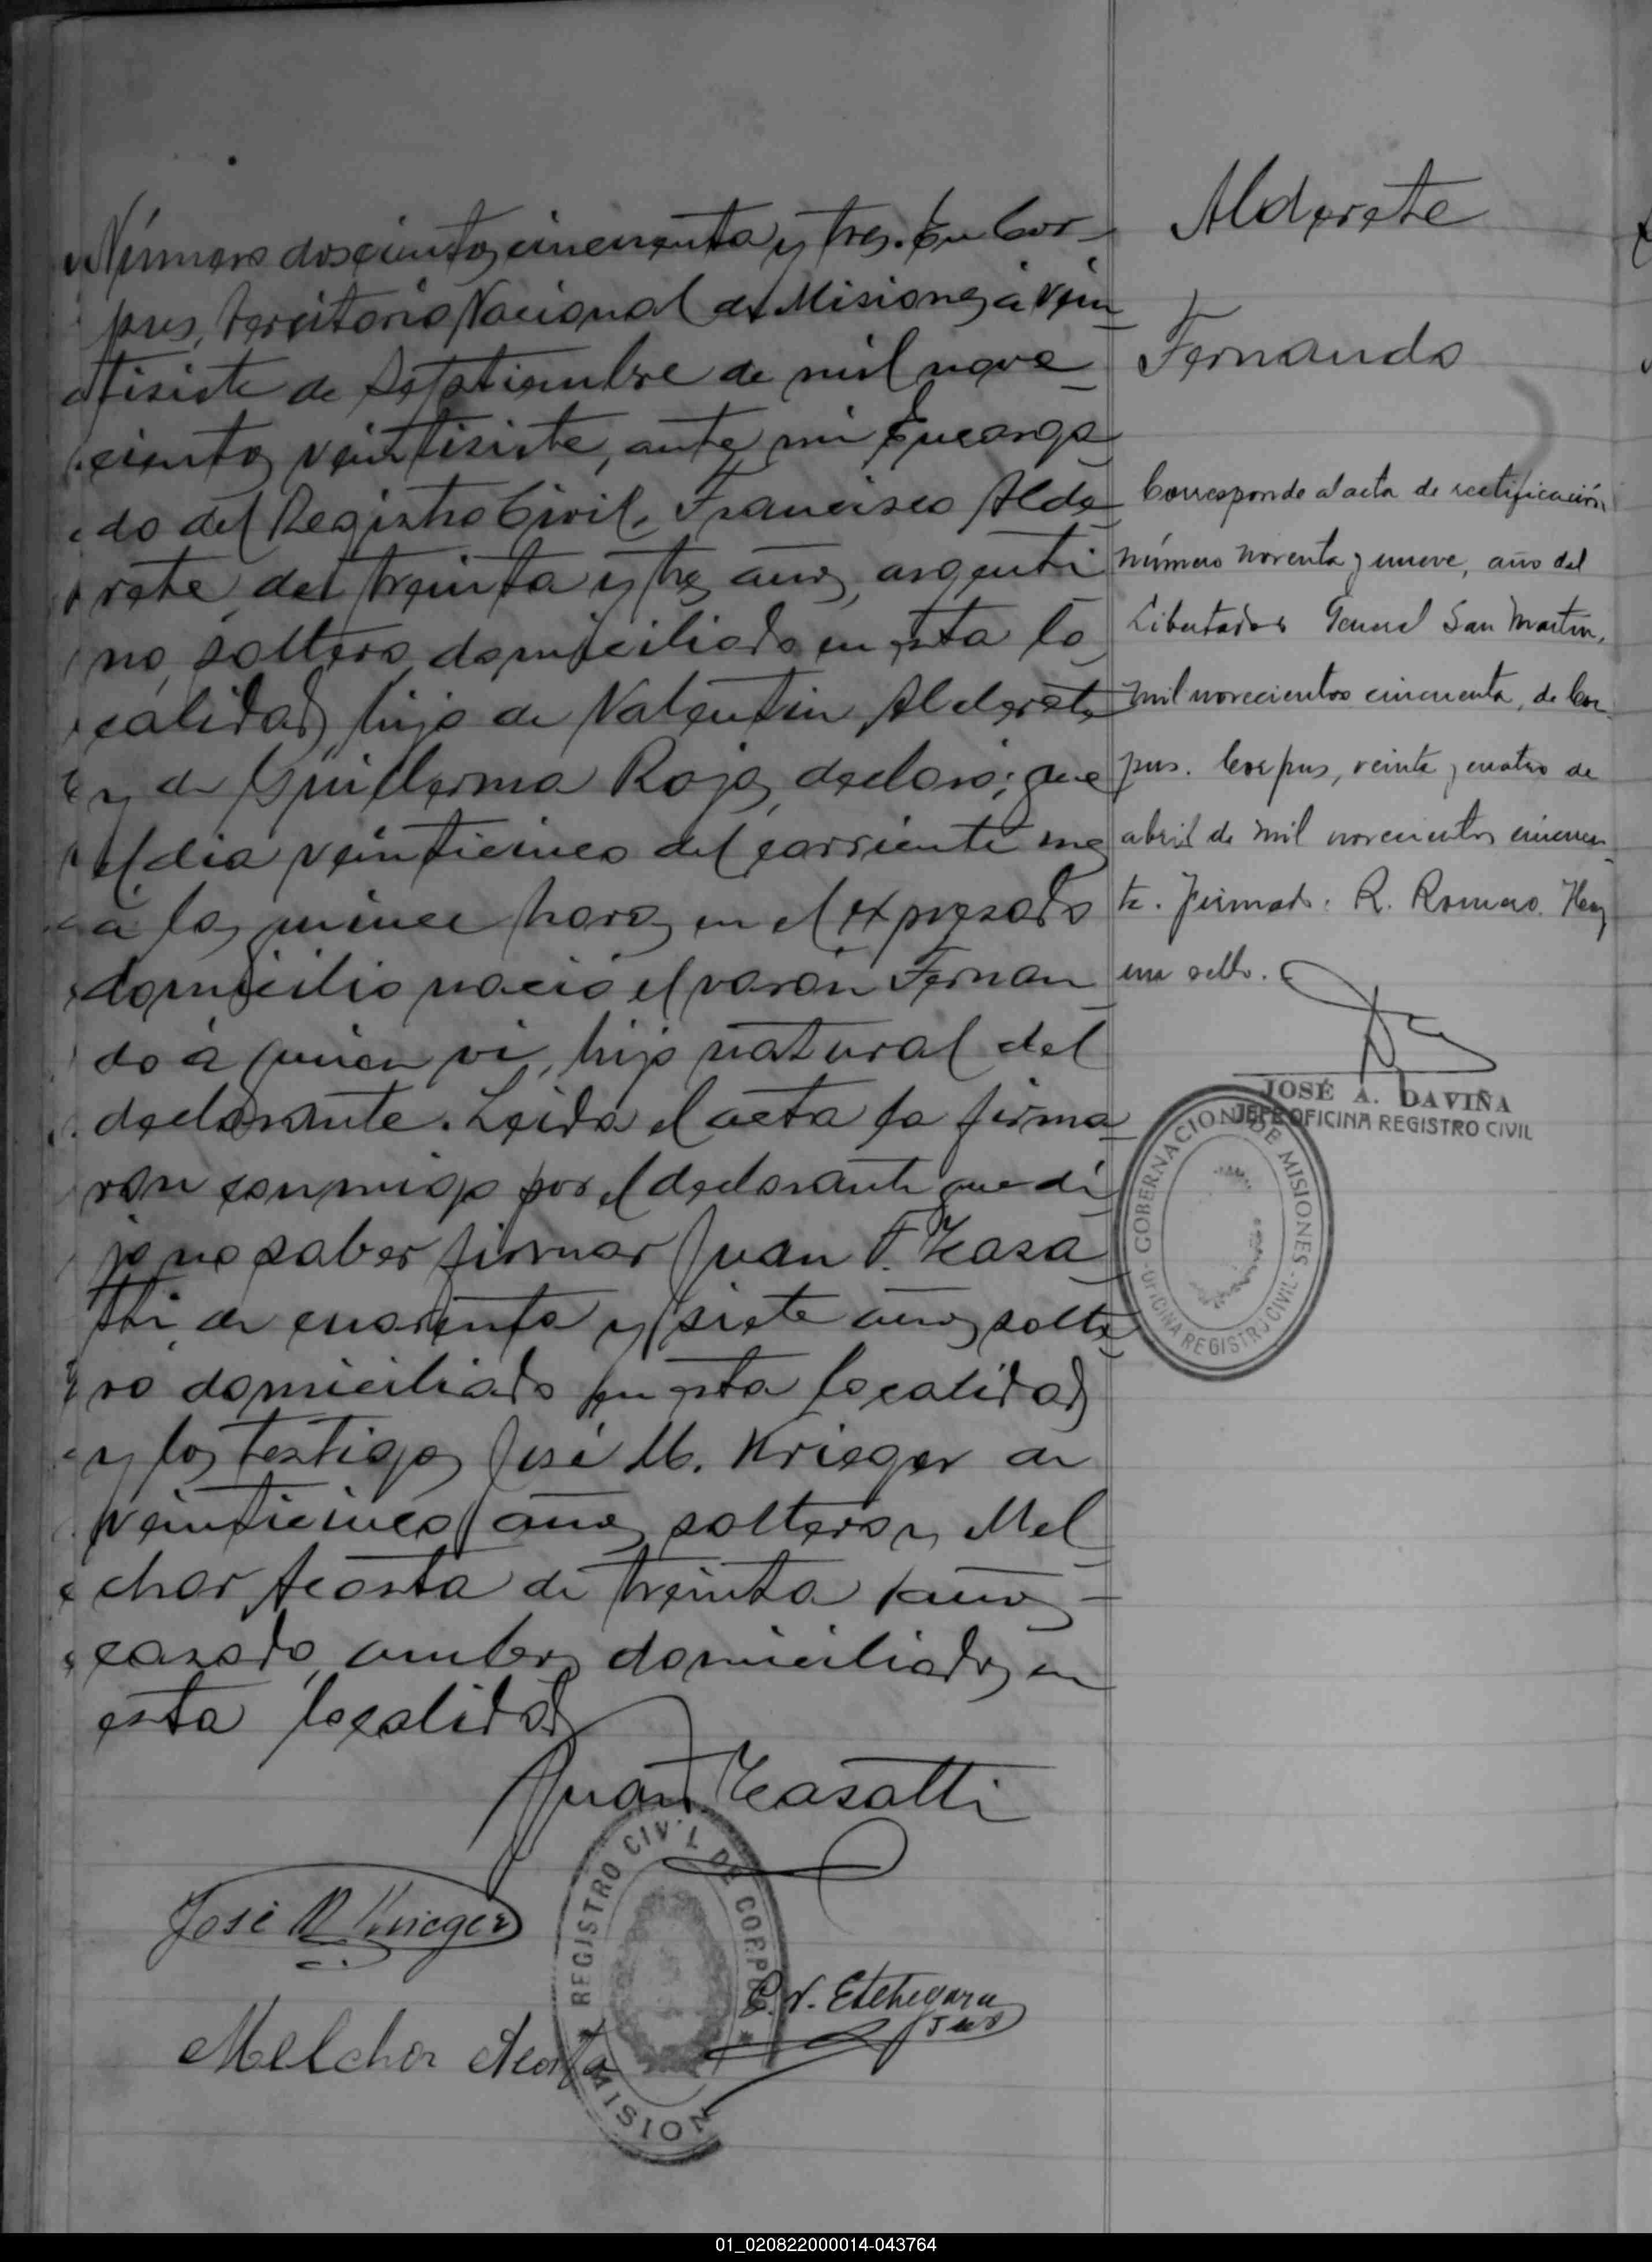 Número doscientos cincuenta y tres. En Cor-
pus, Territorio Nacional de Misiones, á vein
tisiete de Septiembre de mil nove
cientos veintisiete, ante mi Encarga
do del Registro Civil, Francisco Alde
rete de treinta y tres años, argenti
no, soltero, domiciliado en esta lo
calidad, hijo de Valentin Alderete
y de Guillerma Rojas, declaró; que
el dia veinticinco del corriente mes
á las quince horas en el expresado
domicilio nació el varón Fernan
do á quien vi, hijo natural del
declarante. Leida el acta la firma
ron conmigo por el declarante que di
jo no saber firmar Juan F. Casa
tti de cuarenta y siete años, solte
ro domiciliado en esta localidad
y los testigos José M. Krieger de
veinticinco años, soltero y Mel
chor Acosta de treinta años
casado, ambos domiciliados en
esta localidad
Juan F. Casatti
José M Krieger
REGISTRO CIVIL DE CORPUS
MISION
C. V. Etchegaray
Melchor Acosta
Alderete
Fernando
Corresponde al acta de rectificación
número noventa y nueve, año del
Libertador General San Martin,
mil novecientos cincuenta, de Cor-
pus. Corpus, veinte y cuatro de
abril de mil novecientos cincuen-
ta. Firmado: R. Romero. Hay
un sello.
JOSÉ A. DAVIÑA
JEFE OFICINA REGISTRO CIVIL
GOBERNACION DE MISIONES
- OFICINA REGISTRO CIVIL -
01_020822000014-043764